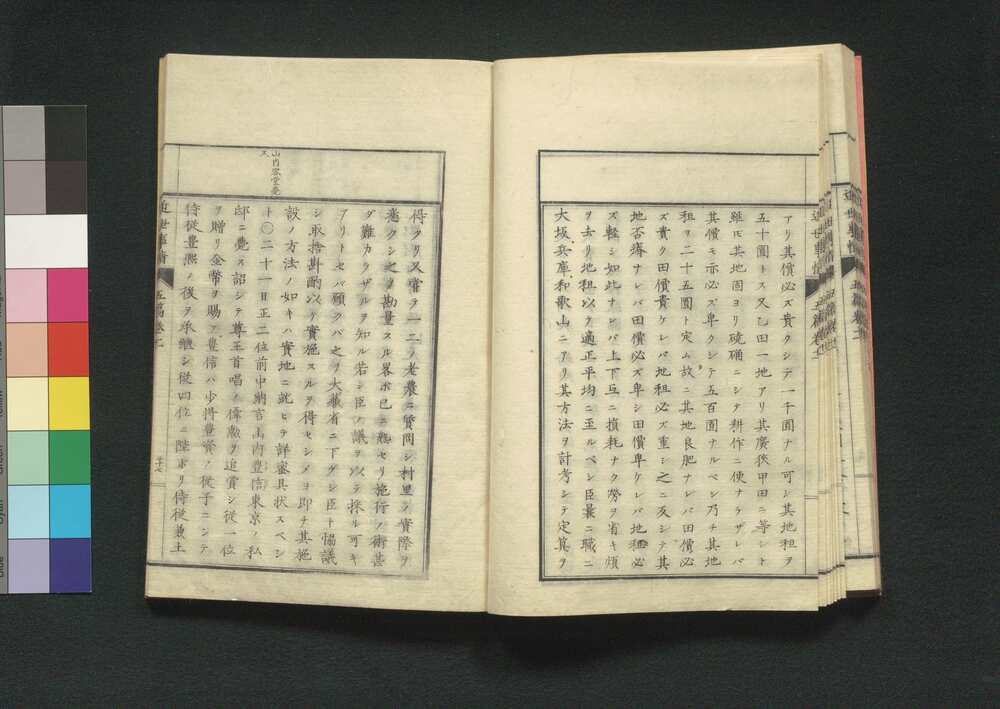 アリ其償必ズ貴クシテ一千圓ナル可シ其地租ヲ
五十圓トス又乙田一地アリ其廣狹甲田ニ等シト
雖モ其地固ヨリ磽确ニシテ耕作ニ便ナラザレバ
其價モ亦必ズ卑クシテ五百圓ナルベシ乃チ其地
租ヲ二十五圓ト定ム故ニ其地良肥ナレバ田價必
ズ貴ク田價貴ケレバ地租必ズ重シ之ニ反シテ其
地否瘠ナレバ田價必ズ卑シ田價卑ケレバ地租必
ズ輕シ如此ナレバ上下互ニ損耗ナク勞ヲ省キ煩
ヲ去リ地租以テ適正平均ニ至ルベシ臣曩ニ職ニ
大坂兵庫和歌山ニアリ其方法ヲ計考シテ定算ヲ
近世事情
五篇卷
山内容堂薨
ス
得タリ又嘗テ一二ノ老農ニ質問シ村里ノ實際ヲ
應クシ之ヲ勘量スル畧ボ已ニ熟セリ施行ノ術甚
ダ難カラザルヲ知ル若シ臣ノ議ヲ以テ採ル可キ
アリトセバ願クバ之ヲ大藏省ニ下グシ臣ト協議
シ取捨斟酌以テ實施スルヲ得セシメヨ即チ其施
設ノ方法ノ如キハ實地ニ就ヒテ詳審具狀スベシ
ト〇二十一日正二位前中納言山内豊信東京ノ私
邸ニ薨ス詔シテ尊王首唱ノ偉勲ヲ追賞シ從一位
ヲ贈リ金幣ヲ賜フ豊信ハ少將豊資ノ從子ニシテ
侍從豊凞ノ後ヲ承繼シ從四位ニ陞ボリ侍從兼土
近世事情
五篇卷